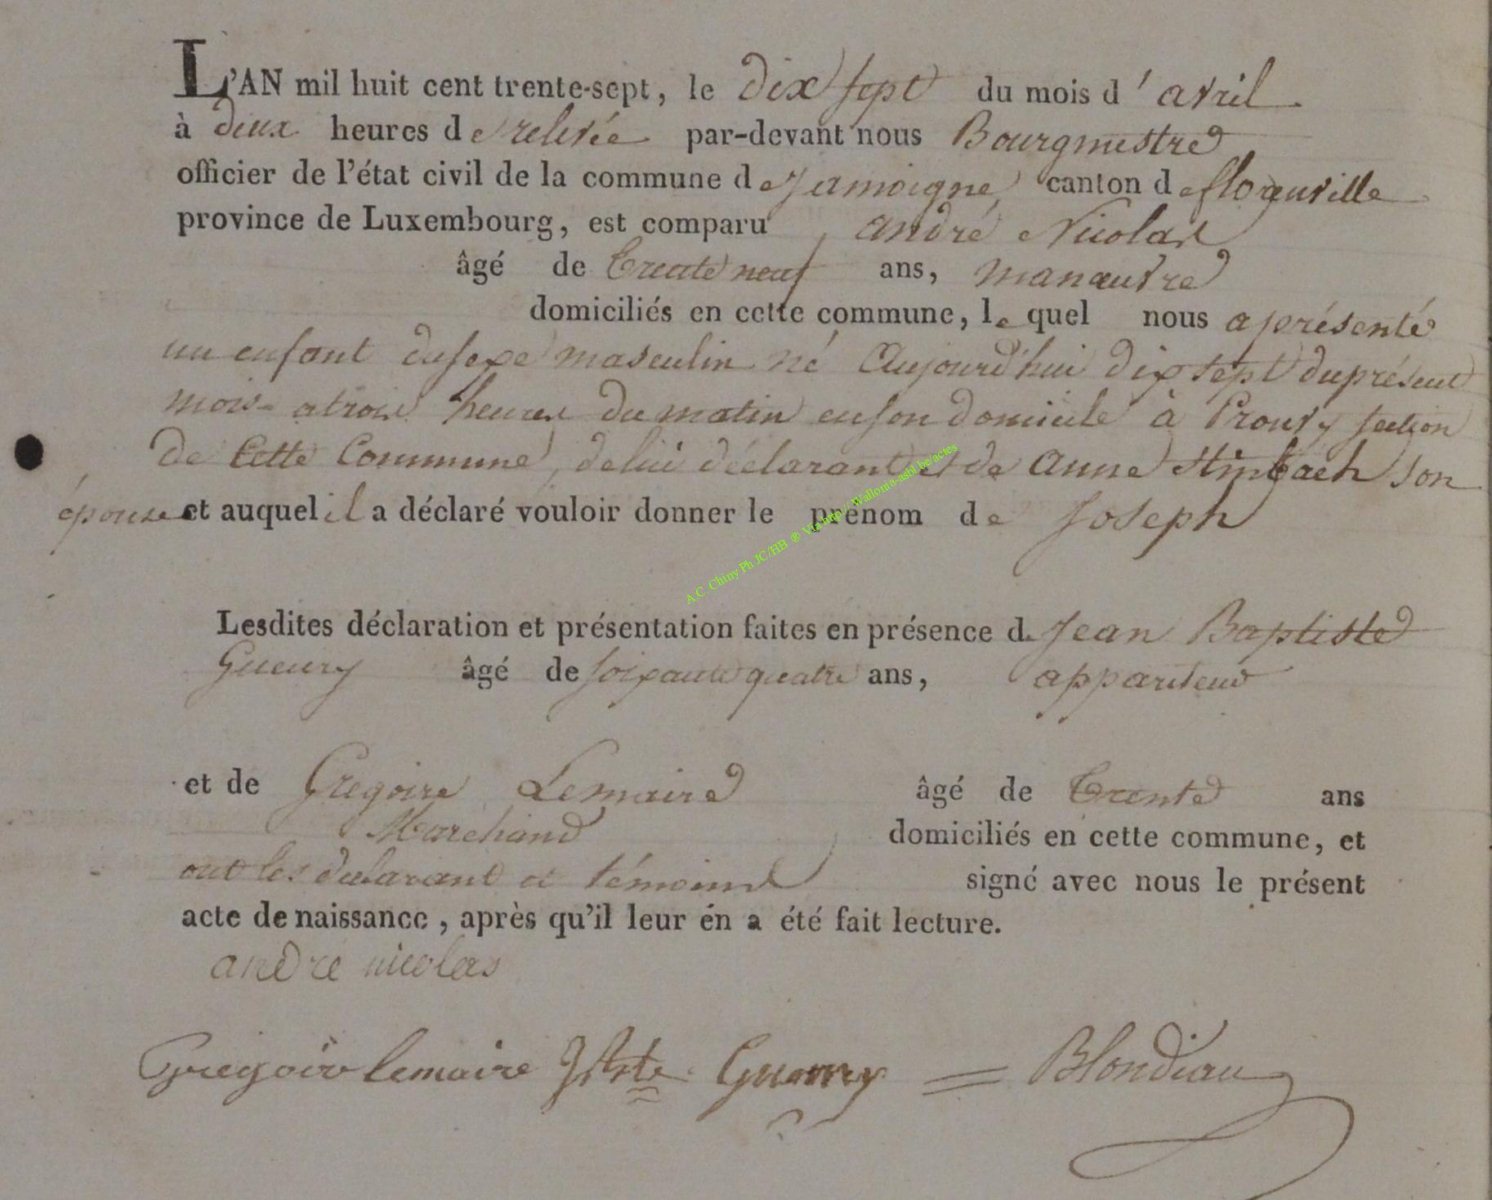 L'AN mil huit cent trente-sept, le dix sept du mois d'avril
à deux heures de relevée par-devant nous Bourgmestre
officier de l'état civil de la commune de Jamoigne, canton de florenville
province de Luxembourg, est comparu andré Nicolas
âgé de trente neuf ans, manœuvre
domiciliés en cette commune, le quel nous a présenté
un enfant du sexe masculin né Aujourd'hui dix sept du présent
mois a trois heures du matin en son domicile à Prouvy section
de Cette Commune, de lui déclarant et de anne son
épouse et auquel il a déclaré vouloir donner le prénom de Joseph
A.C. Chiny Ph JC/HB ®
Lesdites déclaration et présentation faites en présence de Jean Baptiste
Gueury âgé de soixante quatre ans, appariteur
et de Gregoire Lemaire âgé de trente ans
Marchand domiciliés en cette commune, et
ont les declarant et témoins signé avec nous le présent
acte de naissance, après qu'il leur en a été fait lecture.
andré nicolas
Gregoire lemaire JBte Gueury = Blondiau